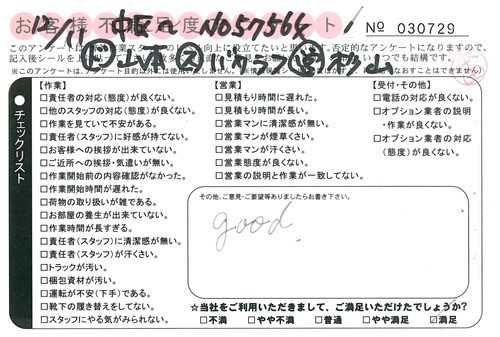 お客様不満足度アンケート № 030729
12/1 No 57564
このアンケートは
記入後シールを
つでも結構です。
※このアンケートは、アンケート目的以外には使用い
チェックリスト
【作業】
□責任者の対応(態度)が良くない。
□他のスタッフの対応(態度)が良くない。
□作業を見ていて不安がある。
□責任者(スタッフ)に好感が持てない。
□お客様への挨拶が出来ていない。
□ご近所への挨拶・気遣いが無い。
□作業開始前の内容確認がなかった。
□作業開始時間が遅れた。
□荷物の取り扱いが雑である。
□お部屋の養生が出来ていない。
□作業時間が長すぎる。
□責任者(スタッフ)に清潔感が無い。
□責任者(スタッフ)が汗くさい。
□トラックが汚い。
□梱包資材が汚い。
□運転が不安(下手)である。
□靴下の履き替えをしてない。
□スタッフにやる気がみられない。
【営業】
□見積もり時間に遅れた。
□見積もり時間が長い。
□営業マンに清潔感が無い。
□営業マンが煙草くさい。
□営業マンが汗くさい。
□営業態度が良くない。
□営業の説明と作業が一致してない。
【受付・その他】
□電話の対応が良くない。
□オプション業者の説明
・作業が良くない。
□オプション業者の対応
(態度)が良くない。
その他、ご意見・ご要望等ありましたらお書き下さい。
good
☆当社をご利用いただきまして、ご満足いただけたでしょうか?
□不満 □やや不満 □普通 □やや満足 ☑満足